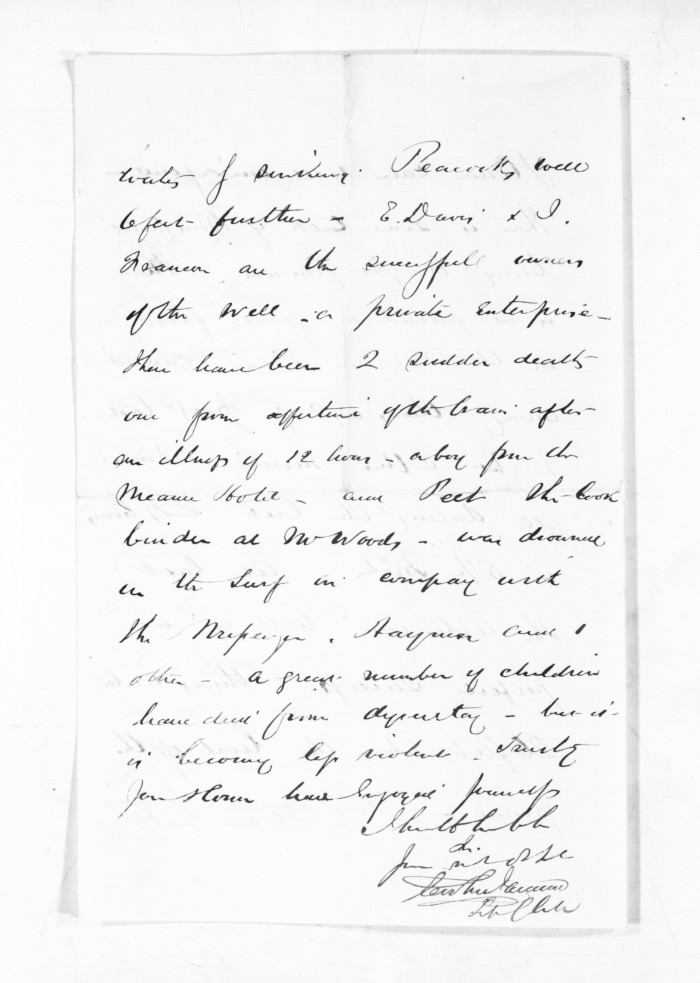 water of sinking. Peacocks well
6 feet further - E. Davis & J.
are the successful owners
of the well - a private Enterprise -
there have been 2 sudden deaths
one from of the brain after
an illness of 12 hours - a boy from the
Meanee Hotel - and Peet the book
binder at Mr Woods - was drowned
in the Surf in company with
the and 1
other - a great number of children
have died from dysentry - but it
is becoming less violent - Trusting
Your Honor have Enjoyed yourself